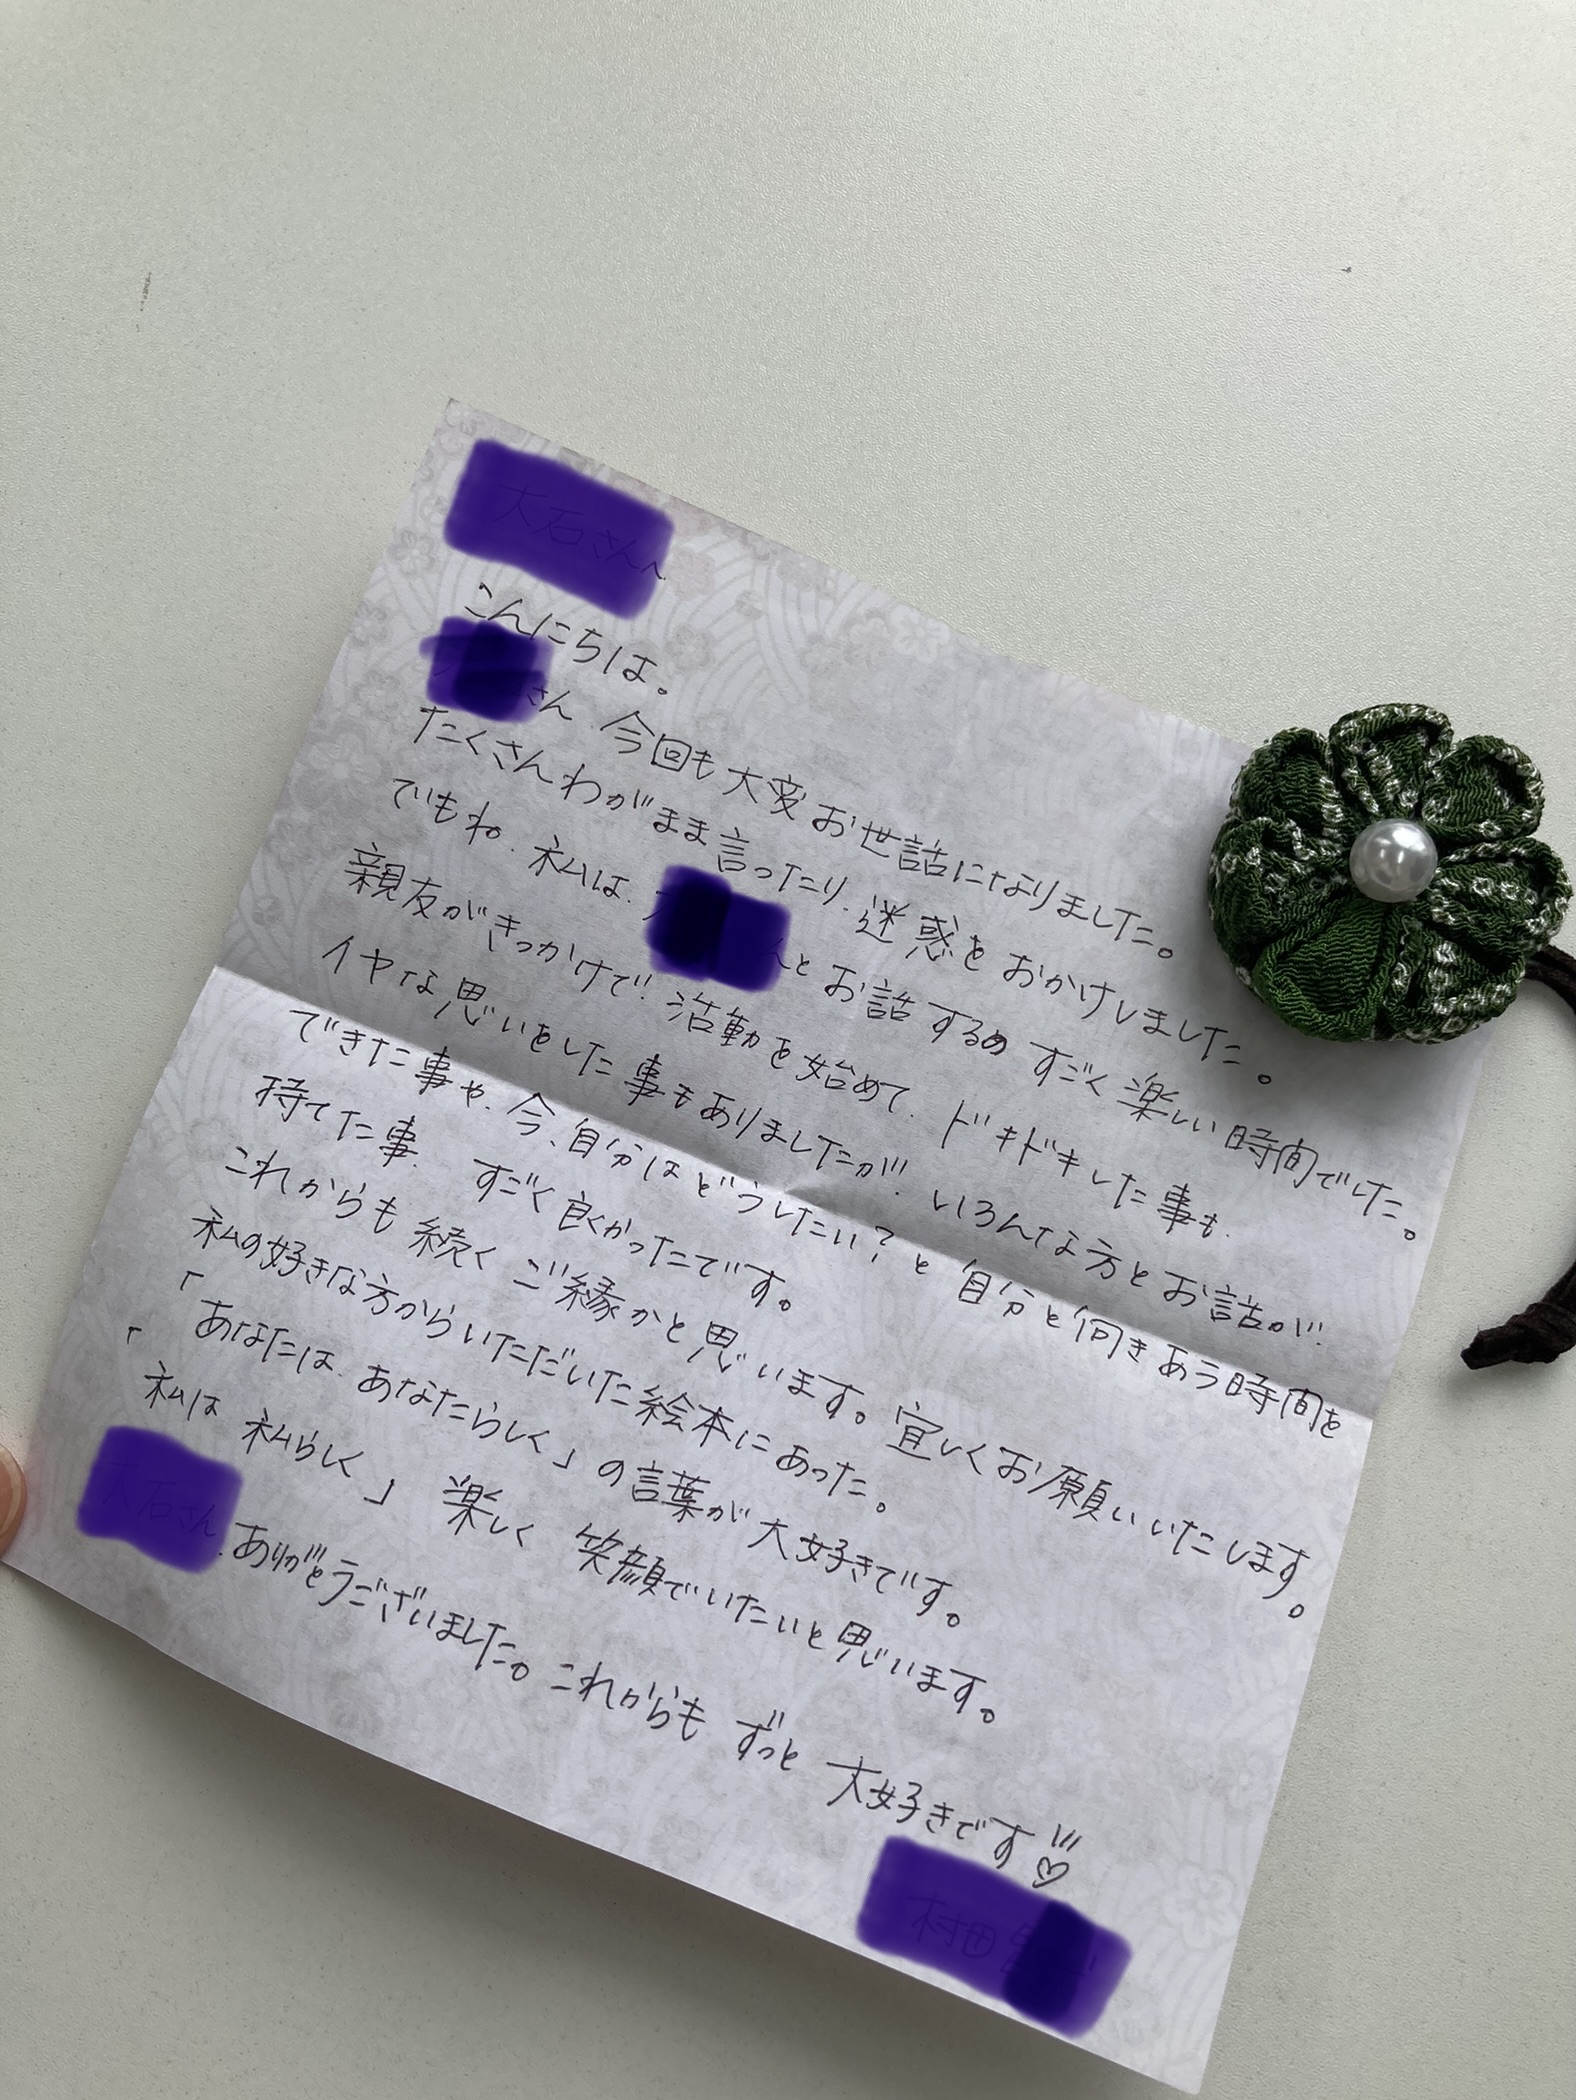 こんにちは。
さん、今回も大変お世話になりました。
たくさんわがまま言ったり、迷惑をおかけしました。
でもね、私は、 とお話するの すごく楽しい時間でした。
親友がきっかけで、活動を始めて、ドキドキした事も、
イヤな思いをした事もありましたが、いろんな方とお話が
できた事や、今、自分はどうしたい？と自分と向きあう時間を
持てた事、すごく良くかったです。
これからも続くご縁かと思います。宜しくお願いいたします。
私の好きな方からいただいた絵本にあった。
「あなたは、あなたらしく」の言葉が大好きです。
「私は 私らしく」楽しく 笑顔でいたいと思います。
ありがとうございました。これからも ずっと 大好きです♡